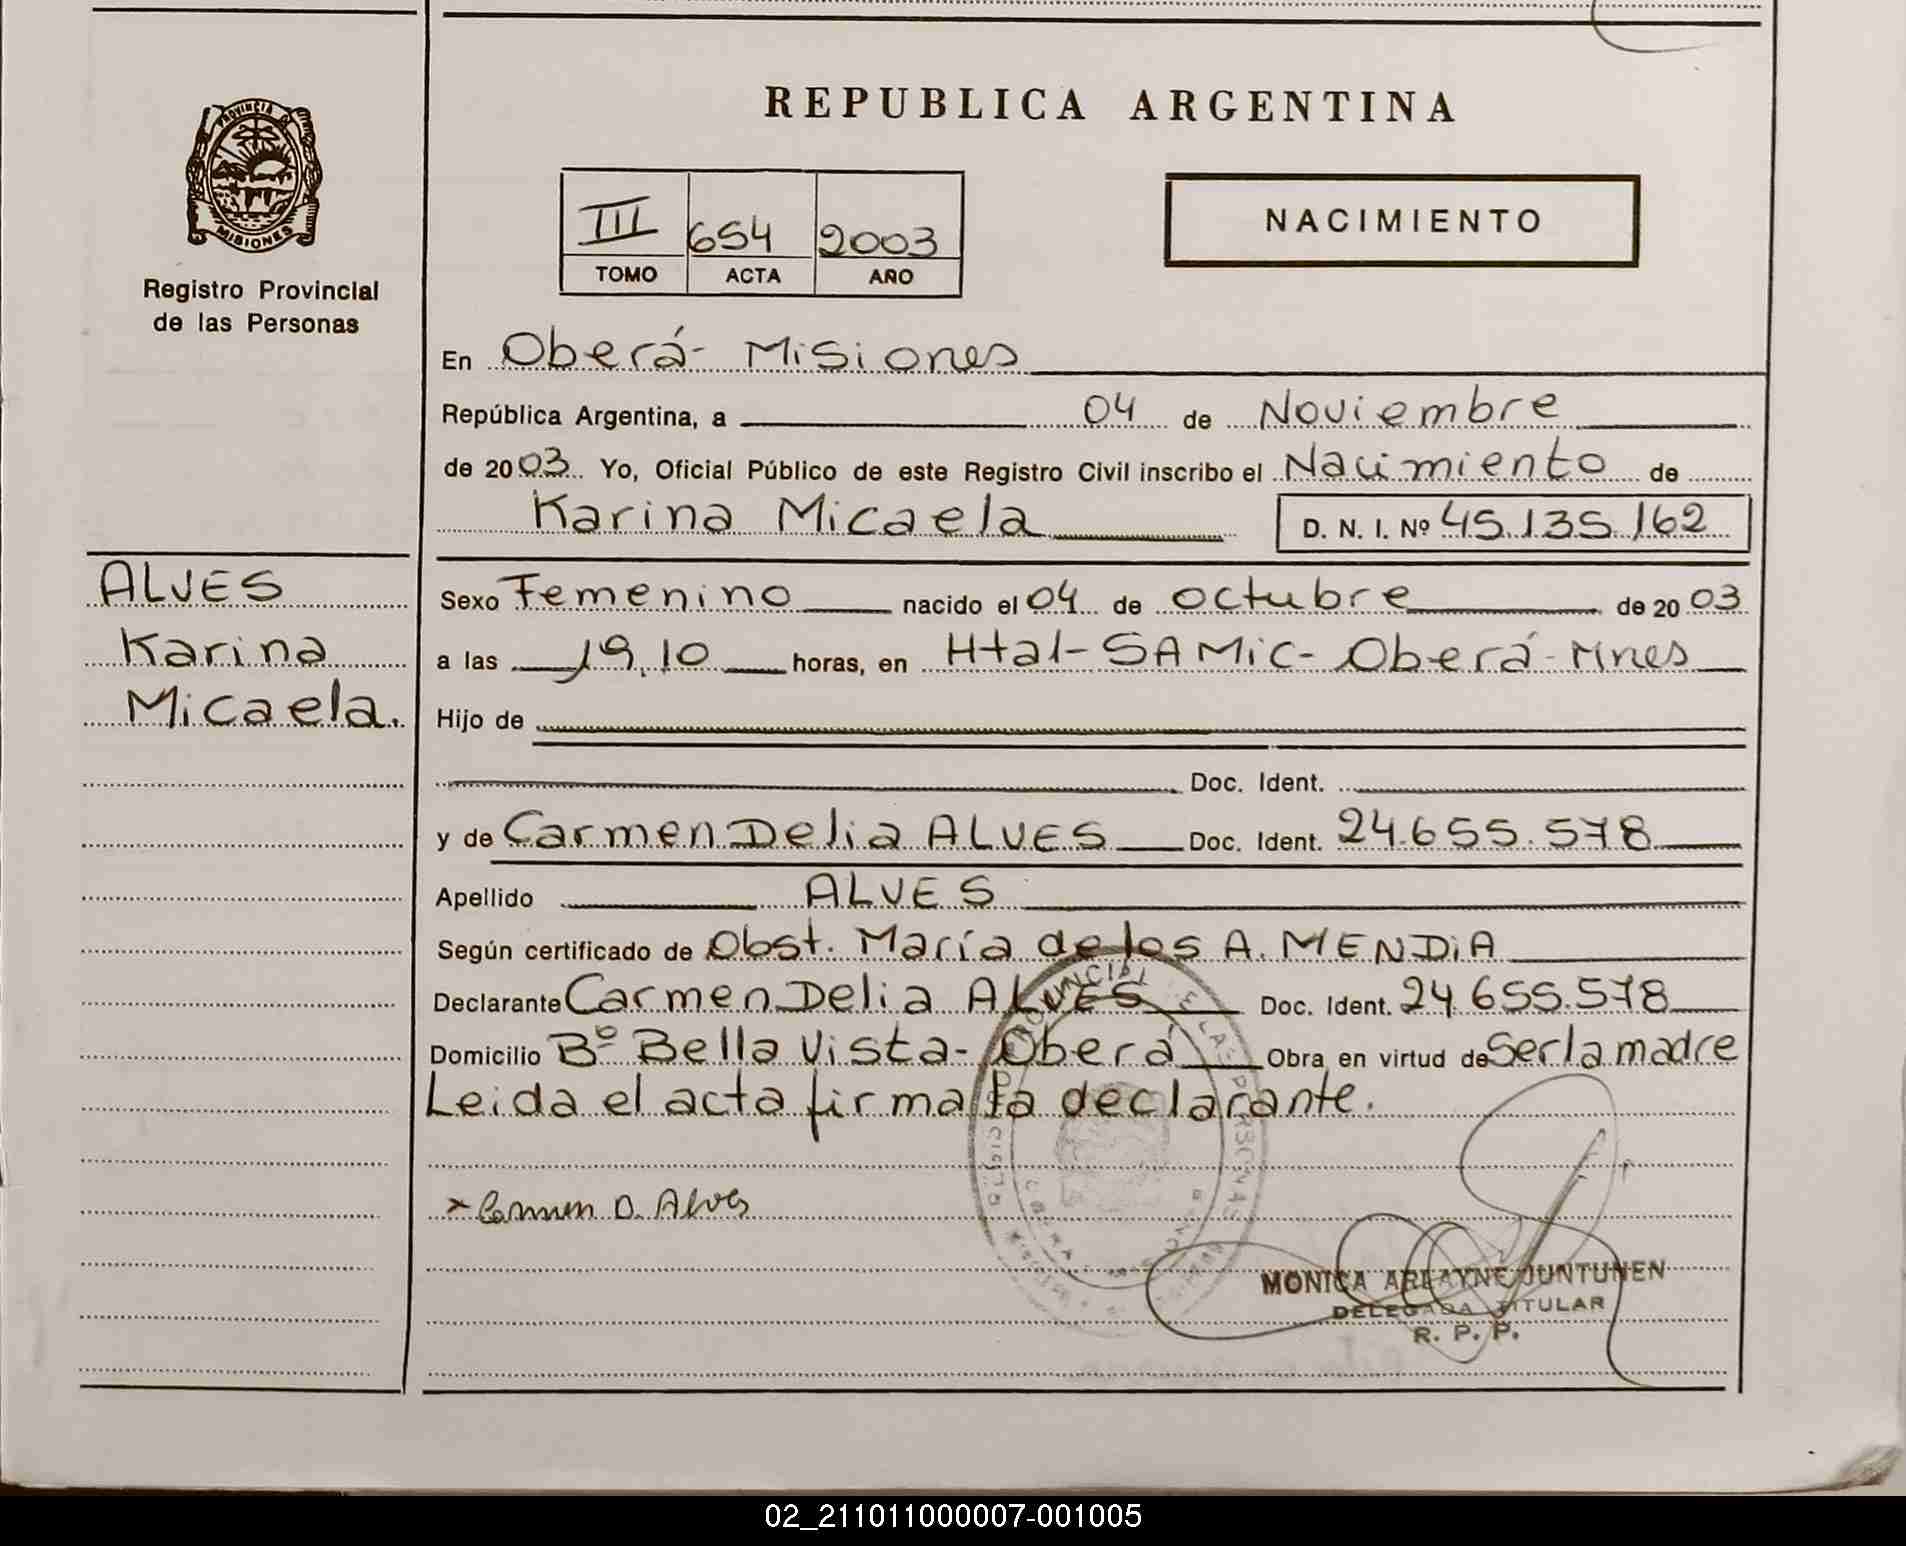 REPUBLICA ARGENTINA
PROVINCIA D
MISIONES
Registro Provincial
de las Personas
III 654 2003
TOMO ACTA AÑO
NACIMIENTO
En Oberá- Misiones
República Argentina, a 04 de Noviembre
de 2003. Yo, Oficial Público de este Registro Civil inscribo el Nacimiento de
Karina Micaela D. N. I. Nº 45.135.162
ALVES
Karina
Micaela.
Sexo Femenino nacido el 04 de octubre de 2003
a las 19.10 horas, en Htal-SAMiC- Oberá-Mnes
Hijo de
Doc. Ident.
y de Carmen Delia ALVES Doc. Ident. 24.655.578
Apellido ALVES
Según certificado de Obst. María de los A. MENDiA
Declarante Carmen Delia ALVES Doc. Ident. 24.655.578
Domicilio Bº Bella Vista- Oberá Obra en virtud de Ser la madre
Leida el acta firma la declarante.
x Carmen D. Alves
MONICA ARLAYNE JUNTUNEN
DELEGADA TITULAR
R. P. P.
02_211011000007-001005